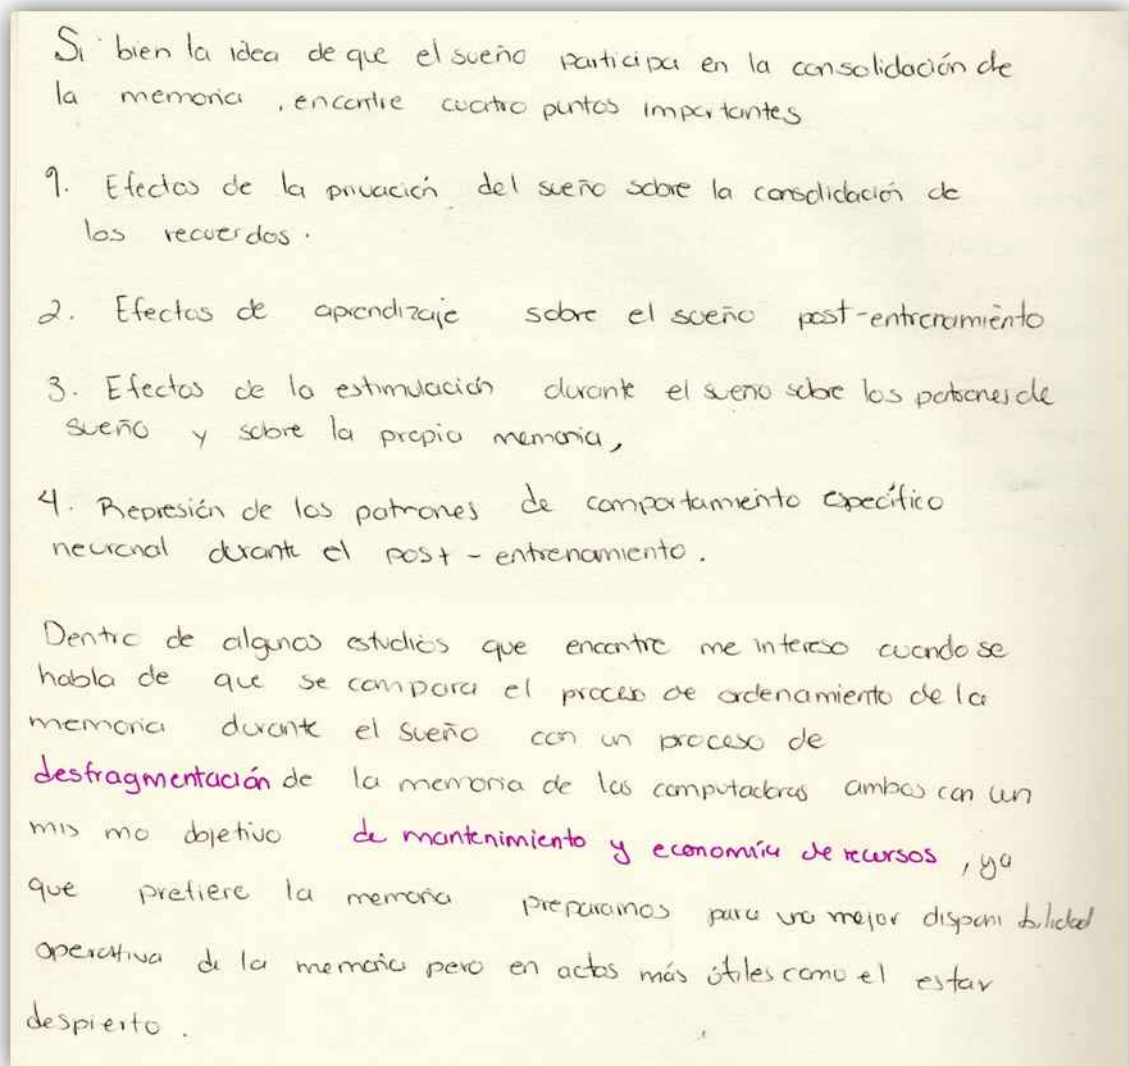 Si bien la idea de que el sueño participa en la consolidación de
la memoria , encontre cuatro puntos importantes
1. Efectos de la privación del sueño sobre la consolidación de
los recuerdos.
2. Efectos de aprendizaje sobre el sueño post-entrenamiento
3. Efectos de la estimulación durante el sueño sobre los patrones de
sueño y sobre la propia memoria,
4. Represión de los patrones de comportamiento específico
neuronal durante el post - entrenamiento.
Dentro de algunos estudios que encontre me intereso cuando se
habla de que se compara el proceso de ordenamiento de la
memoria durante el sueño con un proceso de
desfragmentación de la memoria de las computadoras ambos con un
mismo objetivo de mantenimiento y economía de recursos , ya
que prefiere la memoria prepararnos para una mejor disponibilidad
operativa de la memoria pero en actos más útiles como el estar
despierto .